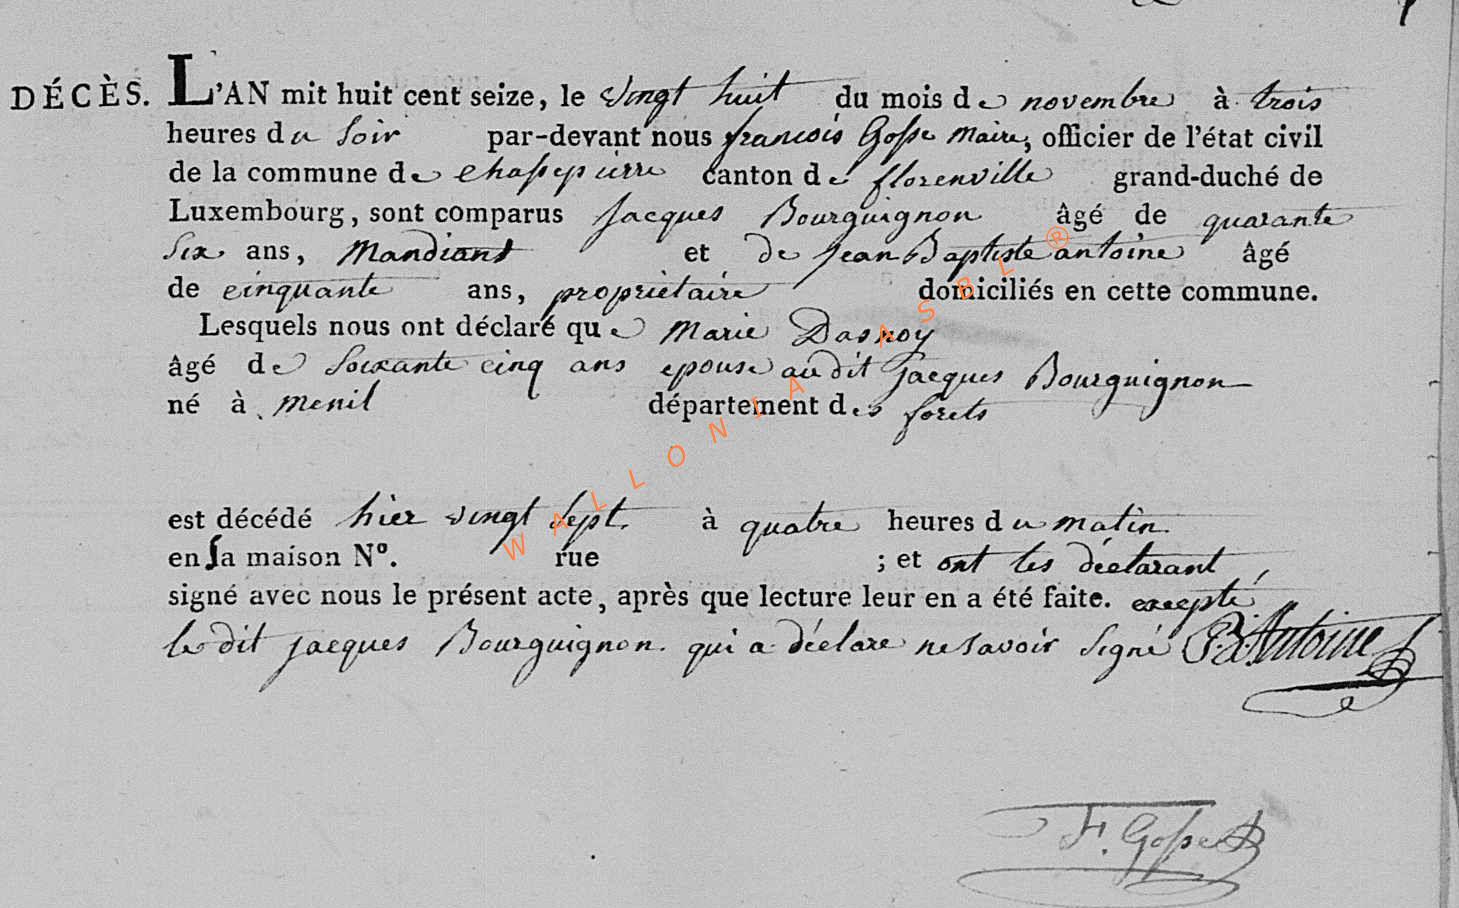 DÉCÈS. L'AN mit huit cent seize, le vingt huit du mois de novembre à trois
heures du soir par-devant nous francois Gosse Maire, officier de l'état civil
de la commune de chassepierre canton de florenville grand-duché de
Luxembourg, sont comparus Jacques Bourguignon âgé de quarante
six ans, Mandiant et de Jean Baptiste antoine âgé
de cinquante ans, propriétaire domiciliés en cette commune.
Lesquels nous ont déclaré que Marie Dasnoy
âgé de soixante cinq ans epouse audit Jacques Bourguignon
né à menil département des forets
est décédé hier vingt sept. à quatre heures du matin.
en sa maison N°. rue ; et ont les déclarant,
signé avec nous le présent acte, après que lecture leur en a été faite. excepté
le dit jacques Bourguignon. qui a déclare ne savoir signé J.B. Antoine
F. Gosse
WALLONIA ASBL ®